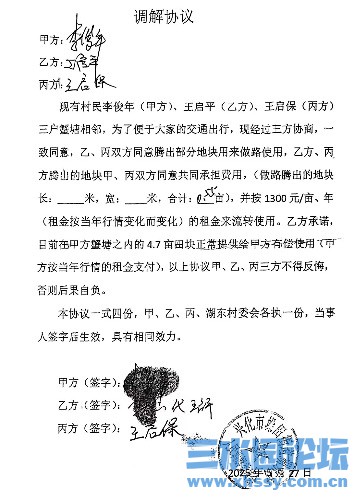 调解协议
甲方：李俊年
乙方：
丙方：王启保
现有村民李俊年（甲方）、王启平（乙方）、王启保（丙方）
三户蟹塘相邻，为了便于大家的交通出行，现经过三方协商，一
致同意，乙、丙双方同意腾出部分地块用来做路使用，乙方、丙
方腾出的地块甲、丙方同意共同承担费用，（做路腾出的地块
长：____米，宽：____米，合计：0.55亩），并按 1300 元/亩、年
（租金按当年行情变化而变化）的租金来流转使用。乙方承诺，
目前在甲方蟹塘之内的 4.7 亩田块正常提供给甲方有偿使用（甲
方按当年行情的租金支付），以上协议甲、乙丙三方不得反悔，
否则后果自负。
本协议一式四份，甲、乙、丙、湖东村委会各执一份，当事
人签字后生效，具有相同效力。
甲方（签字）：
乙方（签字）：
丙方（签字）：王启保
兴化市
2025年 月 27日
三水园论坛
www.xhssy.com